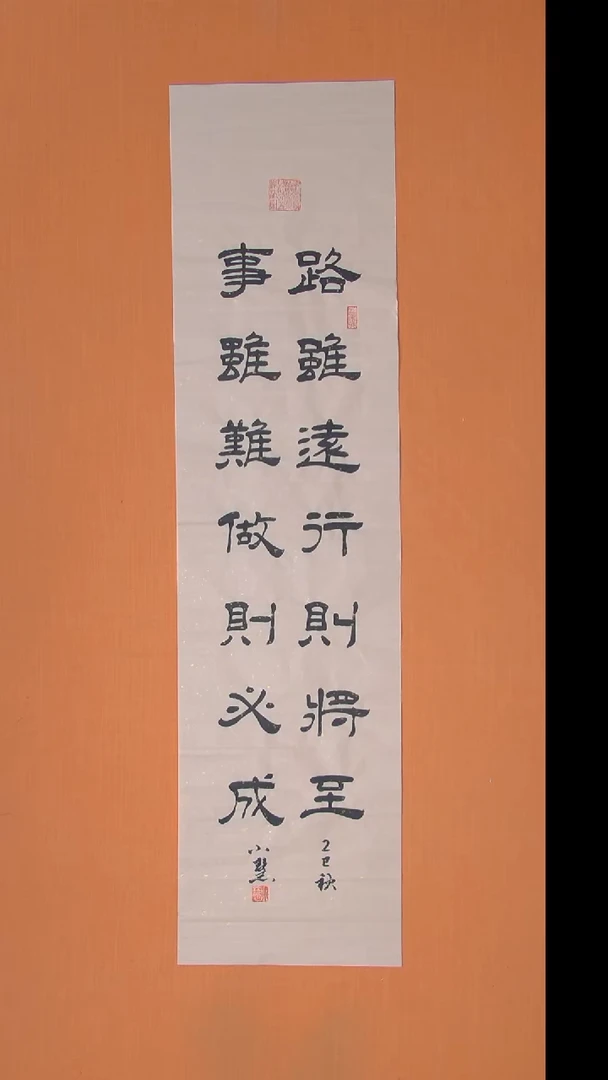 路雖遠行則將至
乙巳秋
事雖難做則必成
小慧